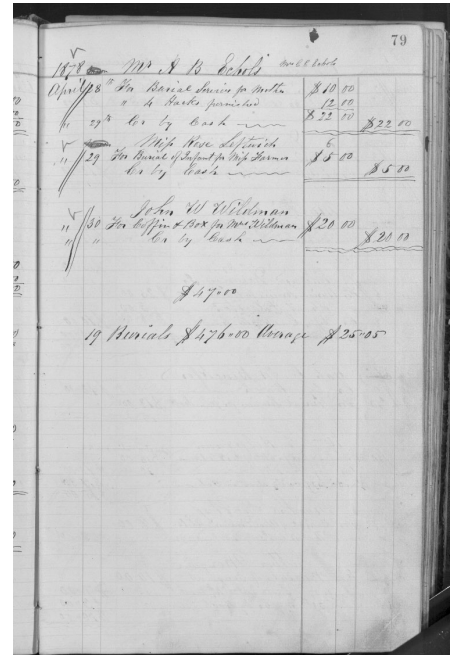 79
1878 Mr A B Echols Mrs C E Echols
April 28th For Burial Services for Mother $10 00
" 4 Hacks furnished 12 00
$22 00
" 29th Cr by Cash $22 00
Miss Rose Leftwich 6
" 29 For Burial of Infant for Miss Farmer $5 00
Cr by Cash $5 00
John W Wildman
" 30 For Coffin & Box for Mrs Wildman $20 00
" " Cr by Cash $20 00
$47.00
19 Burials $476.00 Average $25.05